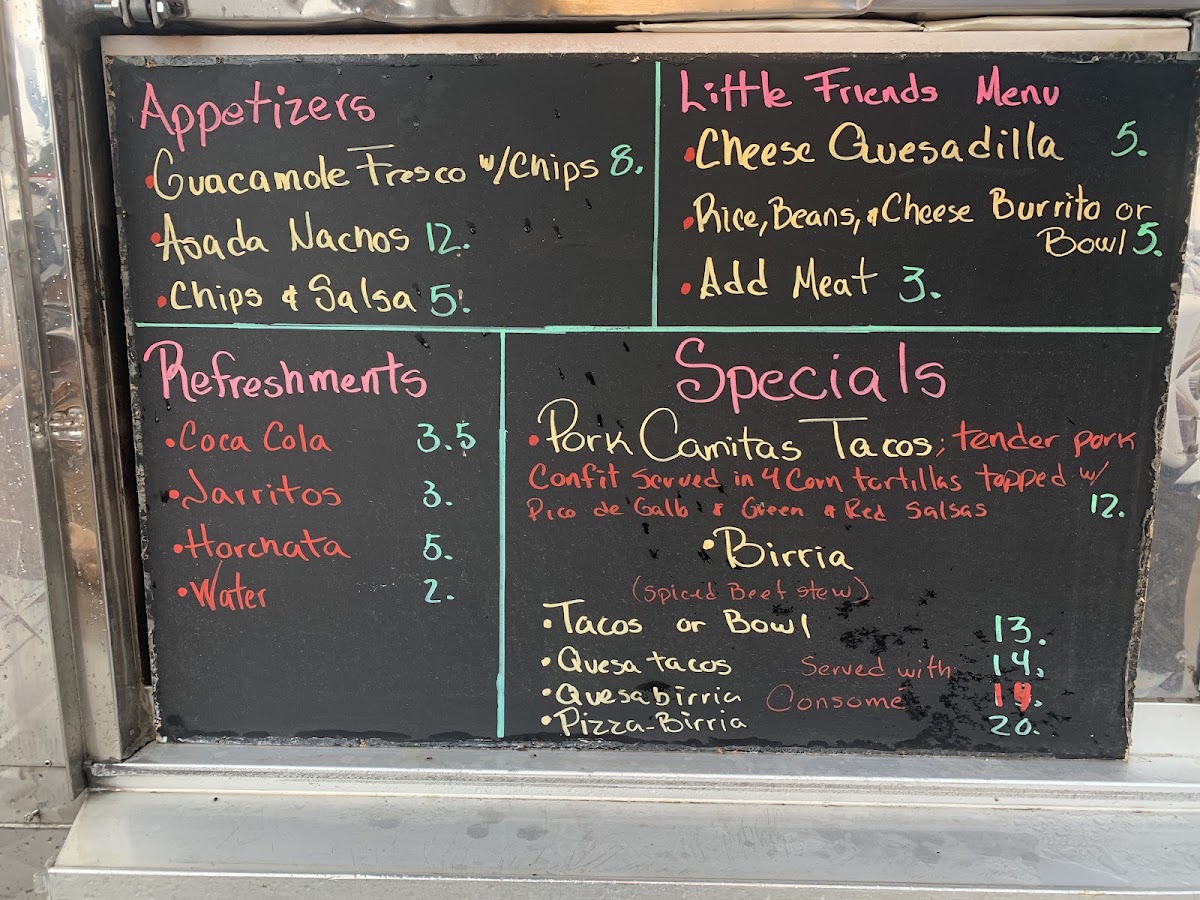 Appetizers
• Guacamole Fresco w/Chips 8.
• Asada Nachos 12.
• Chips & Salsa 5.
Little Friends Menu
• Cheese Quesadilla 5.
• Rice, Beans, & Cheese Burrito or
Bowl 5.
• Add Meat 3.
Refreshments
• Coca Cola 3.5
• Jarritos 3.
• Horchata 5.
• Water 2.
Specials
• Pork Carnitas Tacos; tender pork
Confit served in 4 Corn tortillas topped w/
Pico de Gallo & Green & Red Salsas 12.
• Birria
(spiced Beef stew)
• Tacos or Bowl 13.
• Quesa tacos Served with 14.
• Quesabirria Consomé
• Pizza-Birria 20.